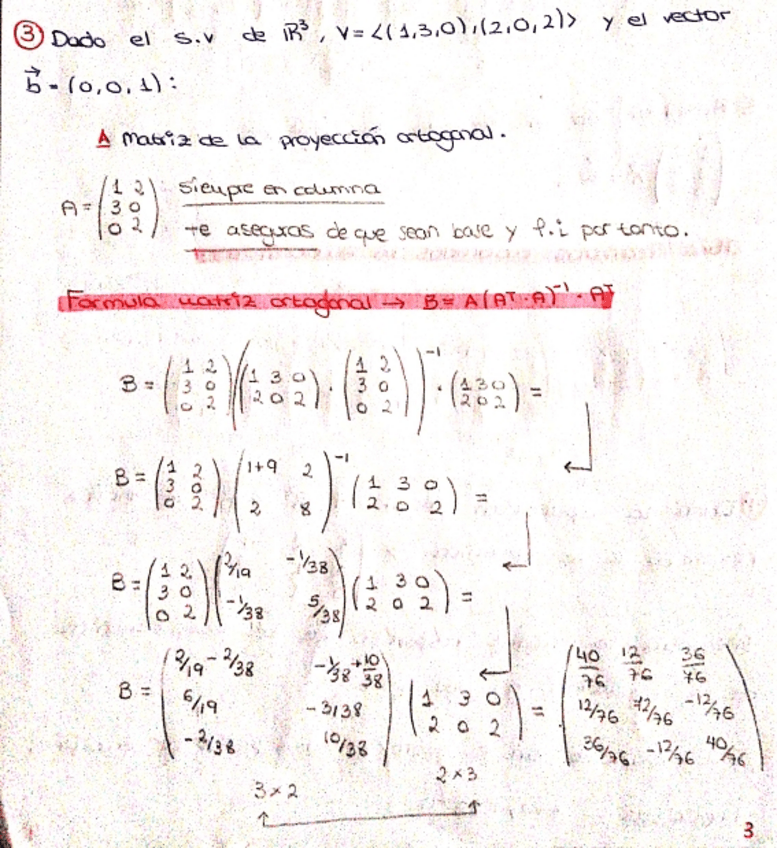 ③ Dado el s.v de ℝ³, V=<(1,3,0),(2,0,2)> y el vector
b⃗ = (0,0,1):
A Matriz de la proyección ortogonal.
A = (1 2; 3 0; 0 2) siempre en columna
te aseguras de que sean base y l.i por tanto.
Formula matriz ortogonal → B = A(Aᵀ·A)⁻¹·Aᵀ
B = (1 2; 3 0; 0 2) ((1 3 0; 2 0 2) · (1 2; 3 0; 0 2))⁻¹ · (1 3 0; 2 0 2) =
B = (1 2; 3 0; 0 2) (1+9 2; 2 8)⁻¹ (1 3 0; 2 0 2) =
B = (1 2; 3 0; 0 2) (2/19 -1/38; -1/38 5/38) (1 3 0; 2 0 2) =
B = (2/19 - 2/38 -1/38 + 10/38; 6/19 -3/38; -2/38 10/38) (1 3 0; 2 0 2) = (40/76 12/76 36/76; 12/76 72/76 -12/76; 36/76 -12/76 40/76)
3×2 2×3
3